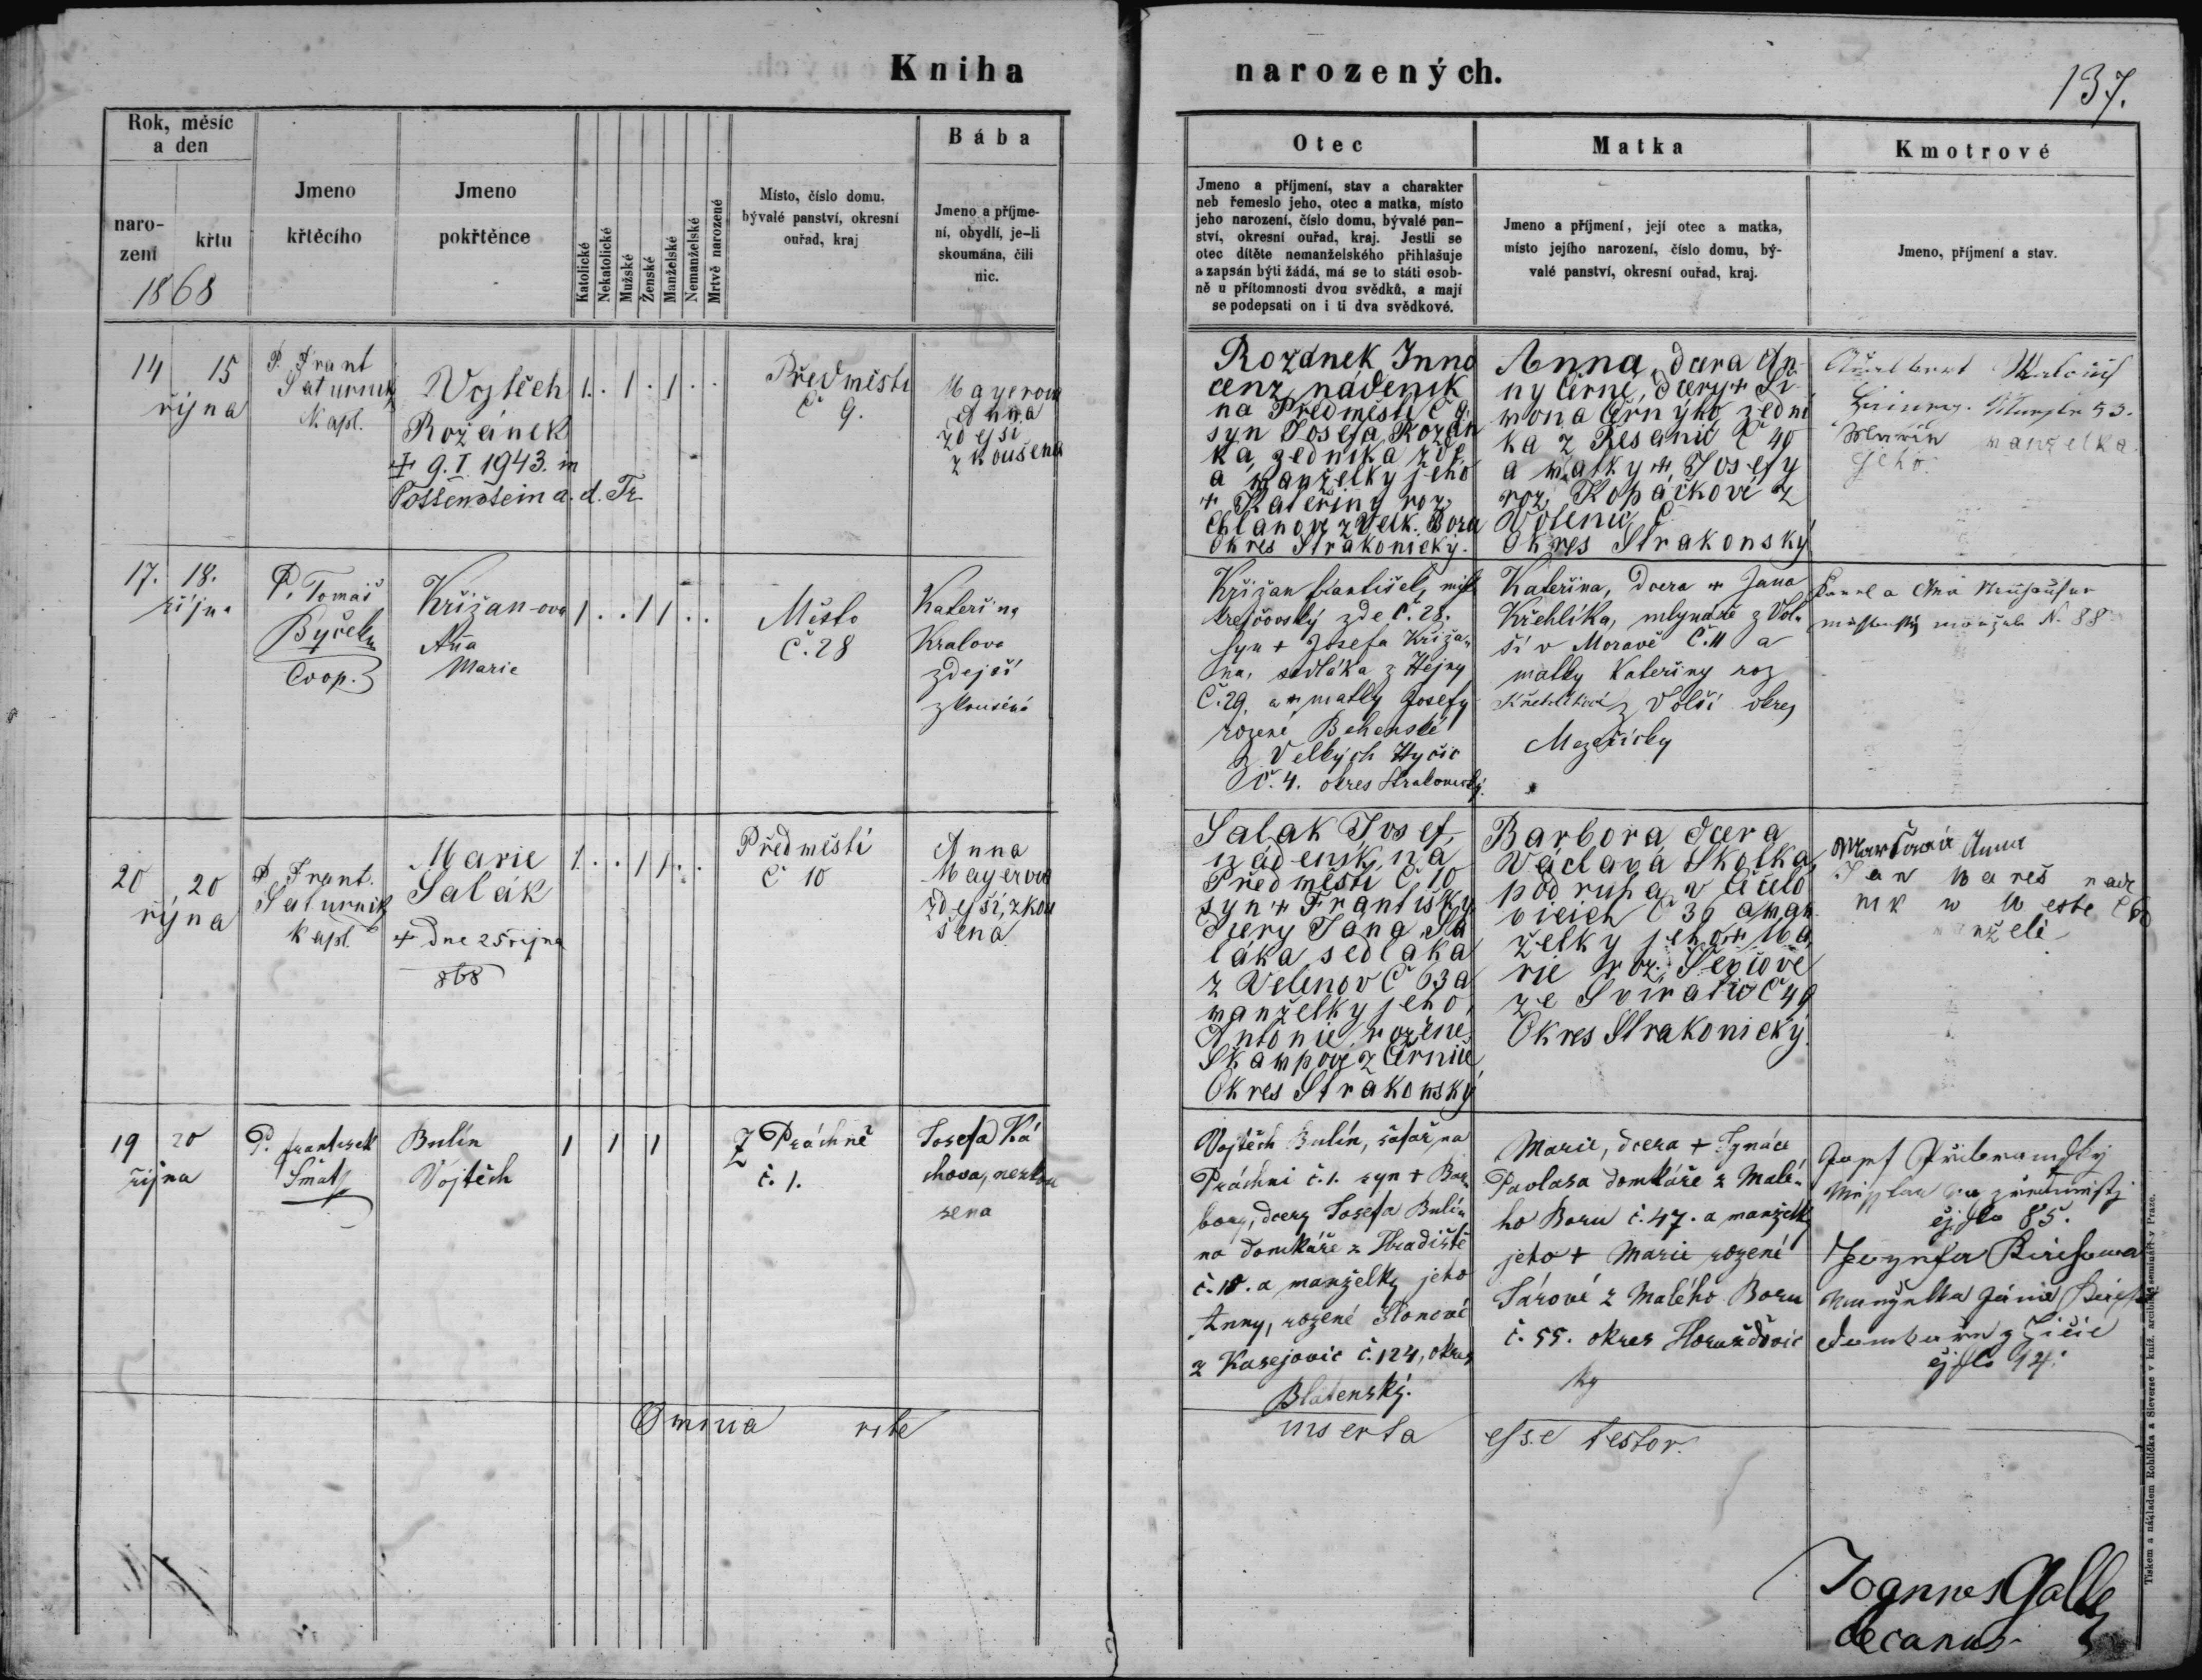 Kniha
narozených.
137.
Rok, měsíc
a den
naro-
zení
křtu
1868
Jmeno
křtěcího
Jmeno
pokřtěnce
Katolické
Nekatolické
Mužské
Ženské
Manželské
Nemanželské
Mrtvě narozené
Místo, číslo domu,
bývalé panství, okresní
ouřad, kraj
Bába
Jmeno a příjme-
ní, obydlí, je-li
skoumána, čili
nic.
Otec
Jmeno a příjmení, stav a charakter
neb řemeslo jeho, otec a matka, místo
jeho narození, číslo domu, bývalé pan-
ství, okresní ouřad, kraj. Jestli se
otec dítěte nemanželského přihlašuje
a zapsán býti žádá, má se to státi osob-
ně u přítomnosti dvou svědků, a mají
se podepsati on i ti dva svědkové.
Matka
Jmeno a příjmení, její otec a matka,
místo jejího narození, číslo domu, bý-
valé panství, okresní ouřad, kraj.
Kmotrové
Jmeno, příjmení a stav.
14 15
října
P. Frant
Saturnik
Kapl.
Vojtěch
Rožánek
+ 9. I. 1943. in
Pottenstein a. d. Tr.
1 . . 1 . 1 . .
Předměstí
Č 9.
Mayerova
Anna
zdejší
zkoušena
Rožánek Inno
cenz, nádeník
na Předměstí Č 9.
syn Josefa Rožán
ka, zedníka zde
a manželky jeho
+ Kateřiny roz.
Chlanové z Velk. Boru
Okres Strakonický.
Anna, dcera An
ny Černé, dcery + Ši
mona Černýho zední
ka z Řesanic Č 40
a matky + Josefy
roz. Kopáčkové z
Volenic Č
Okres Strakonský
manželka
jeho.
17. 18.
října
P. Tomáš
Byček
Coop.
Křižan-ova
Aňa
Marie
1 . . 1 1 . .
Město
Č. 28
Kateřina
Kralova
zdejší
zkoušená
Křižan František, mistr
krejčovský zde č. 28.
syn + Josefa Křiža-
na, sedláka z Hejny
Č. 29. a + matky Josefy
rozené Behenské
z Velkých Hyčic
Č. 4. okres Strakonický.
Kateřina, dcera + Jana
Křehlíka, mlynáře z Vol-
ší v Moravě Č. 11 a
matky Kateřiny roz
z Volší okres
Mezeřický
N. 88
20 20
října
P. Frant.
Saturnik
Kapl.
Marie
Salák
+ dne 25 října
868
1 . . 1 1 . .
Předměstí
Č 10
Anna
Mayerova
zdejší, zkou
šena
Salák Josef,
nádeník na
Předměstí Č 10
syn + Františky
Dcery Jana Sa
láka sedláka
z Velenov Č 63 a
manželky jeho,
Antonie rozené
Škampové z Černíč
Okres Strakonský
Barbora dcera
Václava Skolka
podruha v Čečelo
vicích Č 36 a man
želky jeho + Ma
rie roz. Ševčové
ze Svíratic Č 49
Okres Strakonický.
Anna
Jan Mareš nade
nik
nželé
19 20
října
P. František
Šmat
Bulín
Vojtěch
1 1 1
Z Práchně
č. 1.
Josefa Ká
chova, nezkou
sena
Vojtěch Bulín, šafář na
Práchni č. 1. syn + Bar-
bory, dcery Josefa Bulí-
na domkáře z Hradiště
č. 18. a manželky jeho
Anny, rozené Slonové
z Kasejovic č. 124, okres
Blatenský.
Marie, dcera + Ignáce
Pavlasa domkáře z Malé-
ho Boru č. 47. a manželky
jeho + Marie rozené
Sárové z Malého Boru
č. 55. okres Horažďovic
ký
Josef Příbramský
čjslo 85.
čjslo 14.
Omnia rite inserta esse testor.
Joannes Galle
decanus
Tiskem a nákladem Rohlíčka a Sieverse v kníž. arcibisk. semináři v Praze.